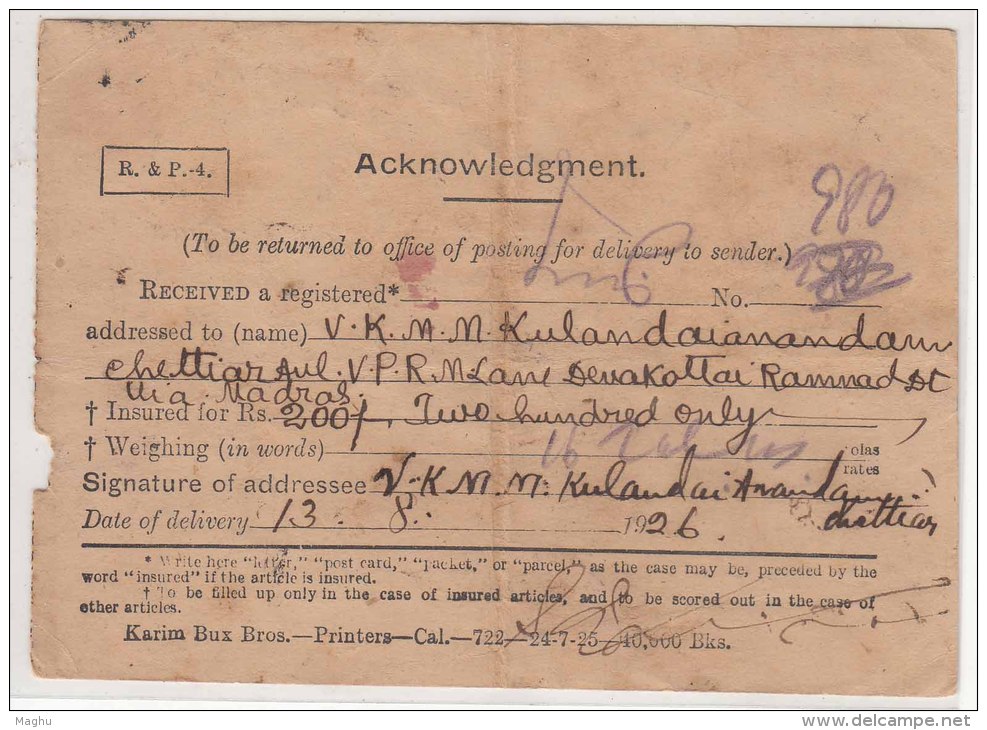 R. & P.-4.
Acknowledgment.
983
(To be returned to office of posting for delivery to sender.)
RECEIVED a registered* No.
addressed to (name) V. K. M. M. Kulandaianandam
chettiar Avl. V. P. R. M. Lane Devakottai Ramnad Dt
Via Madras.
† Insured for Rs. 200/- Two hundred only
† Weighing (in words) 16 olas
rates
Signature of addressee V. K. M. M. Kulandai Anandam
chettiar
Date of delivery 13. 8. 1926.
* Write here "letter," "post card," "packet," or "parcel," as the case may be, preceded by the
word "insured" if the article is insured.
† To be filled up only in the case of insured articles, and to be scored out in the case of
other articles.
Karim Bux Bros.—Printers—Cal.—722—24-7-25—40,000 Bks.
Maghu
delcampe.net